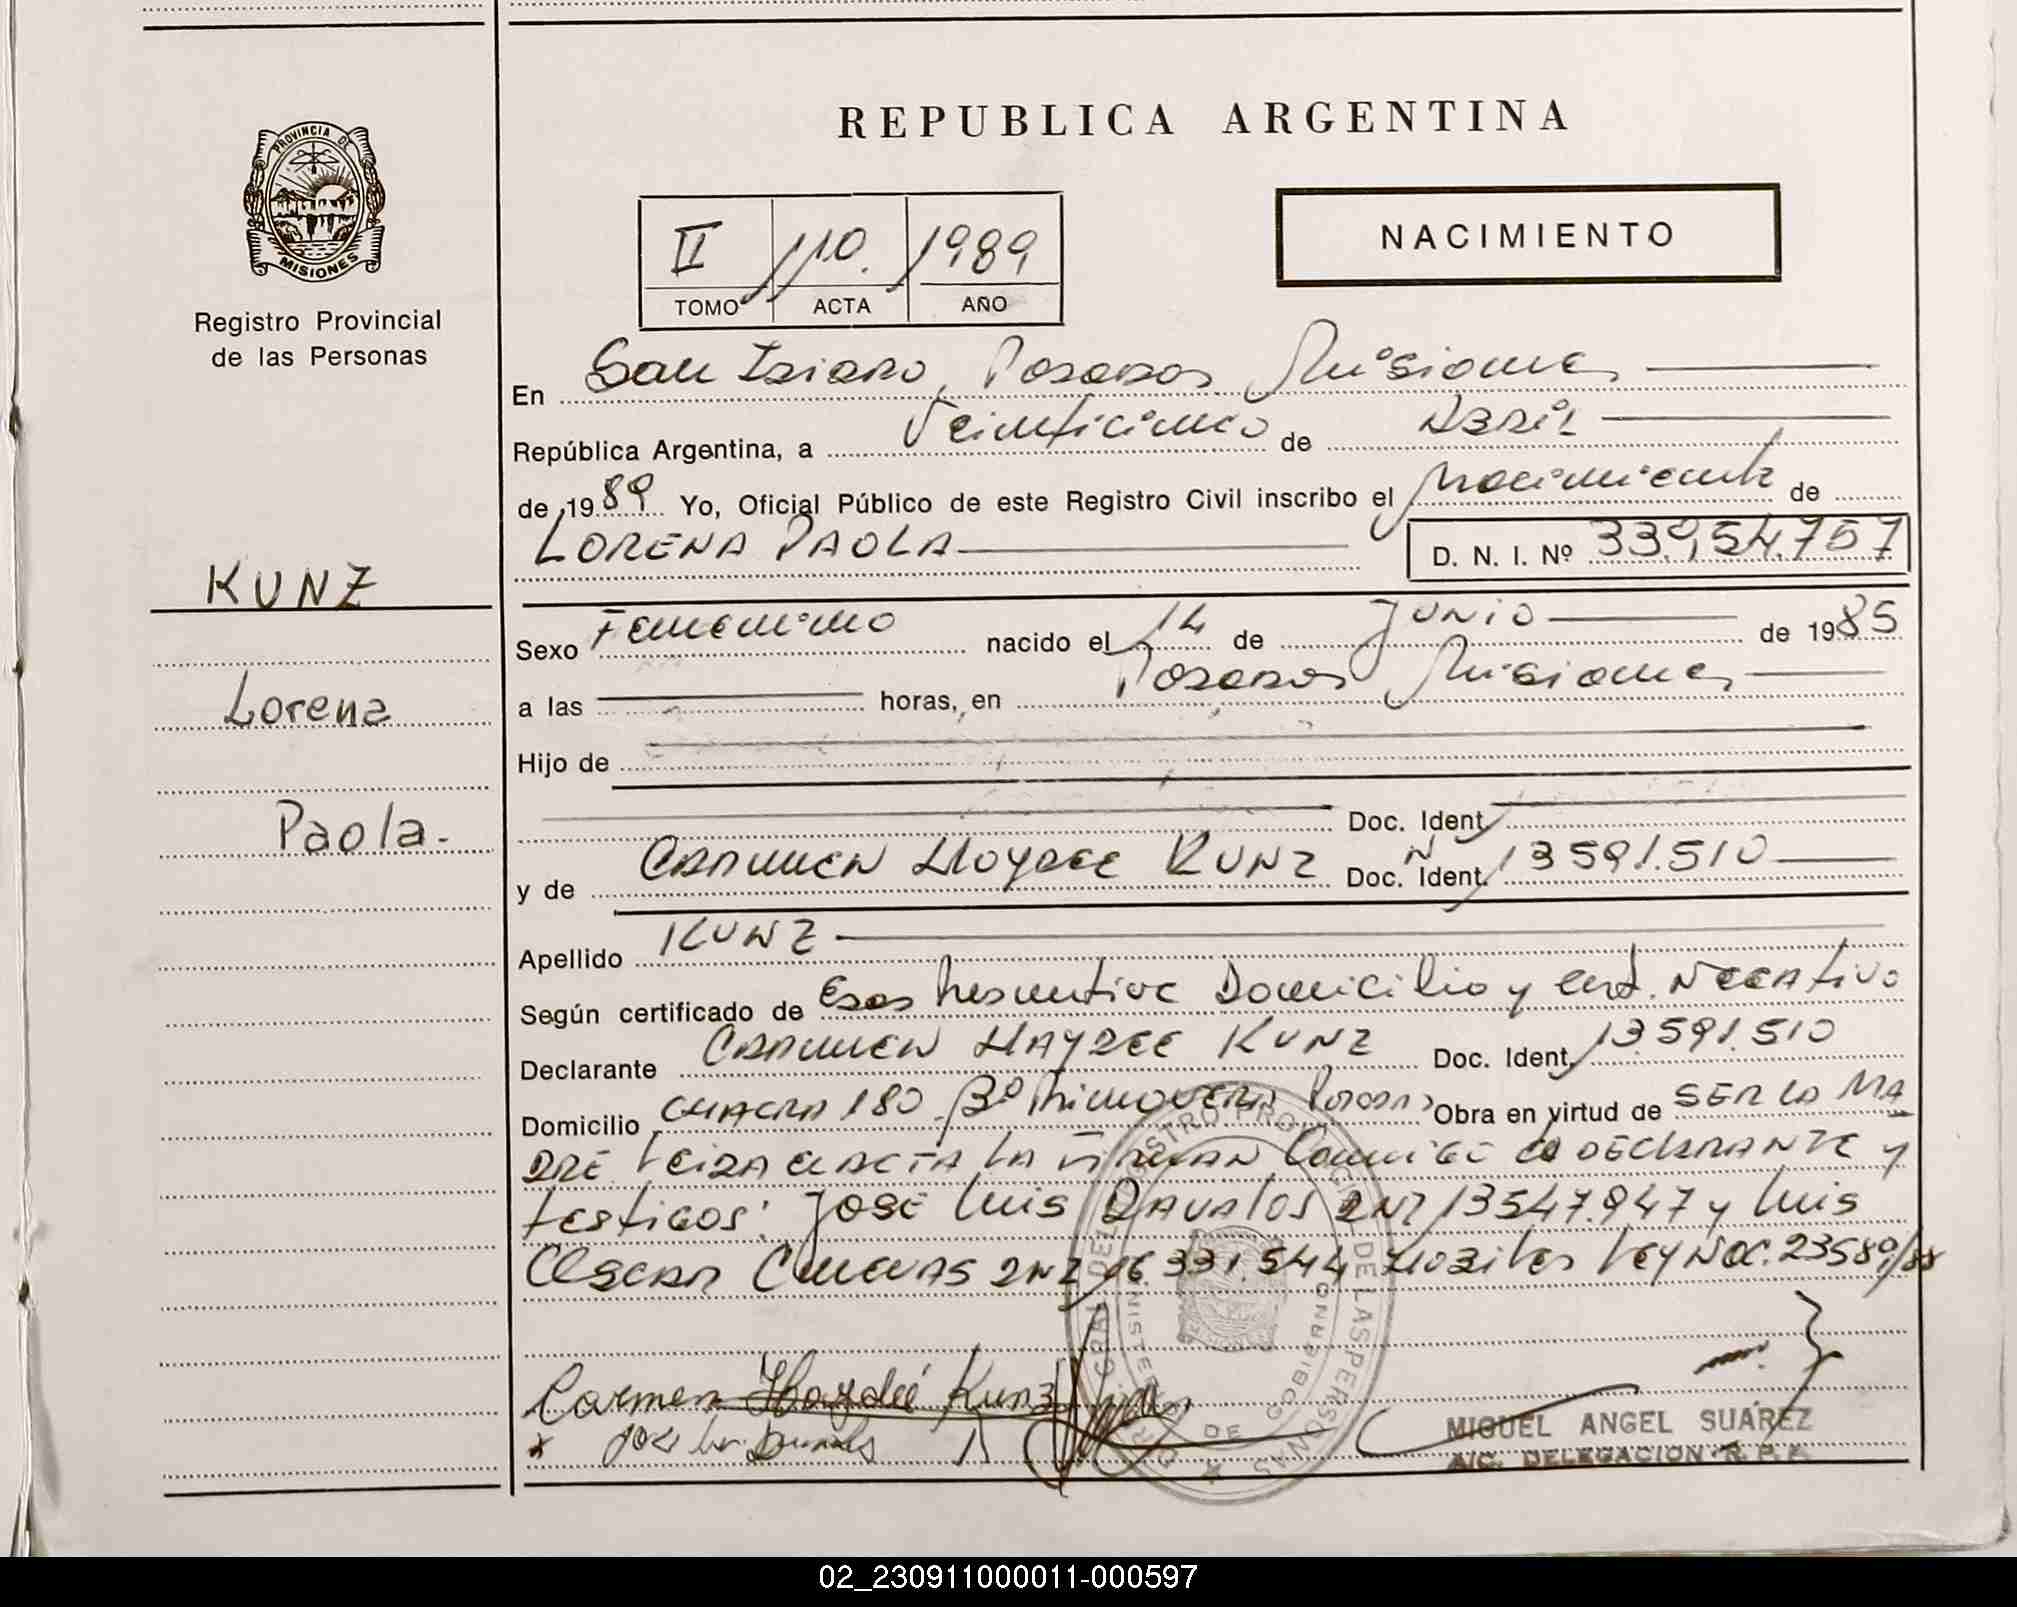 PROVINCIA DE
MISIONES
Registro Provincial
de las Personas
KUNZ
Lorena
Paola.
REPUBLICA ARGENTINA
II 110. 1989
TOMO ACTA AÑO
NACIMIENTO
En San Isidro, Posadas Misiones
República Argentina, a Veinticinco de Abril
de 1989 Yo, Oficial Público de este Registro Civil inscribo el Nacimiento de
LORENA PAOLA D. N. I. Nº 33.954.757
Sexo Femenino nacido el 14 de Junio de 1985
a las horas, en Posadas Misiones
Hijo de
Doc. Ident.
y de CARMEN HAYDEE KUNZ Doc. Ident. 13591.510
Apellido KUNZ
Según certificado de Domicilio y Cert. Negativo
Declarante CARMEN HAYDEE KUNZ Doc. Ident. 13.591.510
Domicilio CHACRA 180 Bº Primavera Posadas Obra en virtud de SER LA MA
DRE Leida el ACTA LA FIRMAN Conmigo la DECLARANTE y
testigos: JOSE Luis DAVALOS DNI 13547.947 y Luis
OSCAR CUEVAS DNI 16.331.544 Ley Nac. 23.58 /88
Carmen Haydeé Kunz
MIGUEL ANGEL SUÁREZ
A/C. DELEGACION R. P. P.
02_230911000011-000597